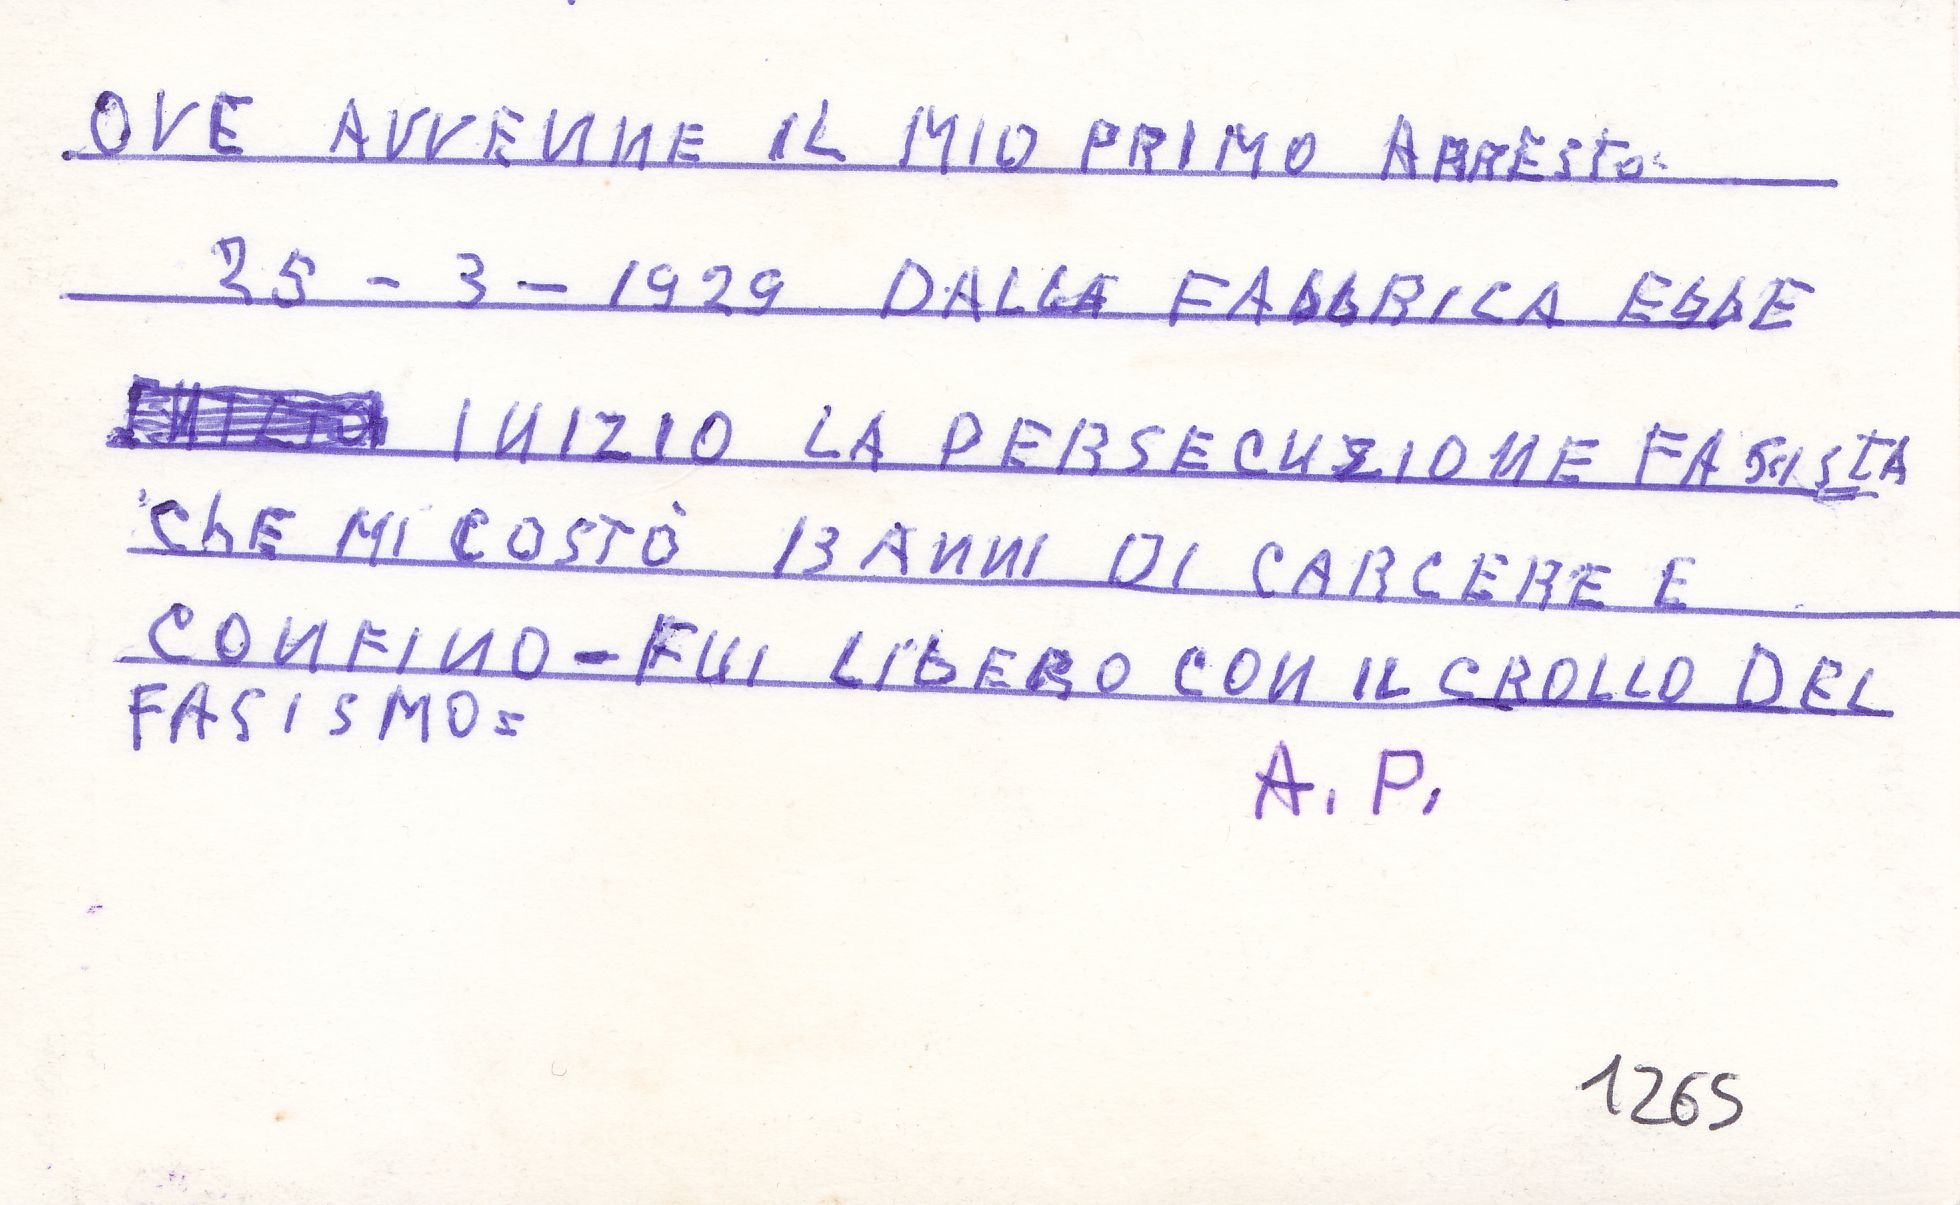 OVE AVVENNE IL MIO PRIMO ARRESTO=
25 - 3 - 1929 DALLA FABBRICA EBBE
INIZIO INIZIO LA PERSECUZIONE FASCISTA
CHE MI COSTÒ 13 ANNI DI CARCERE E
CONFINO - FUI LIBERO CON IL CROLLO DEL
FASISMO=
A. P.
1265